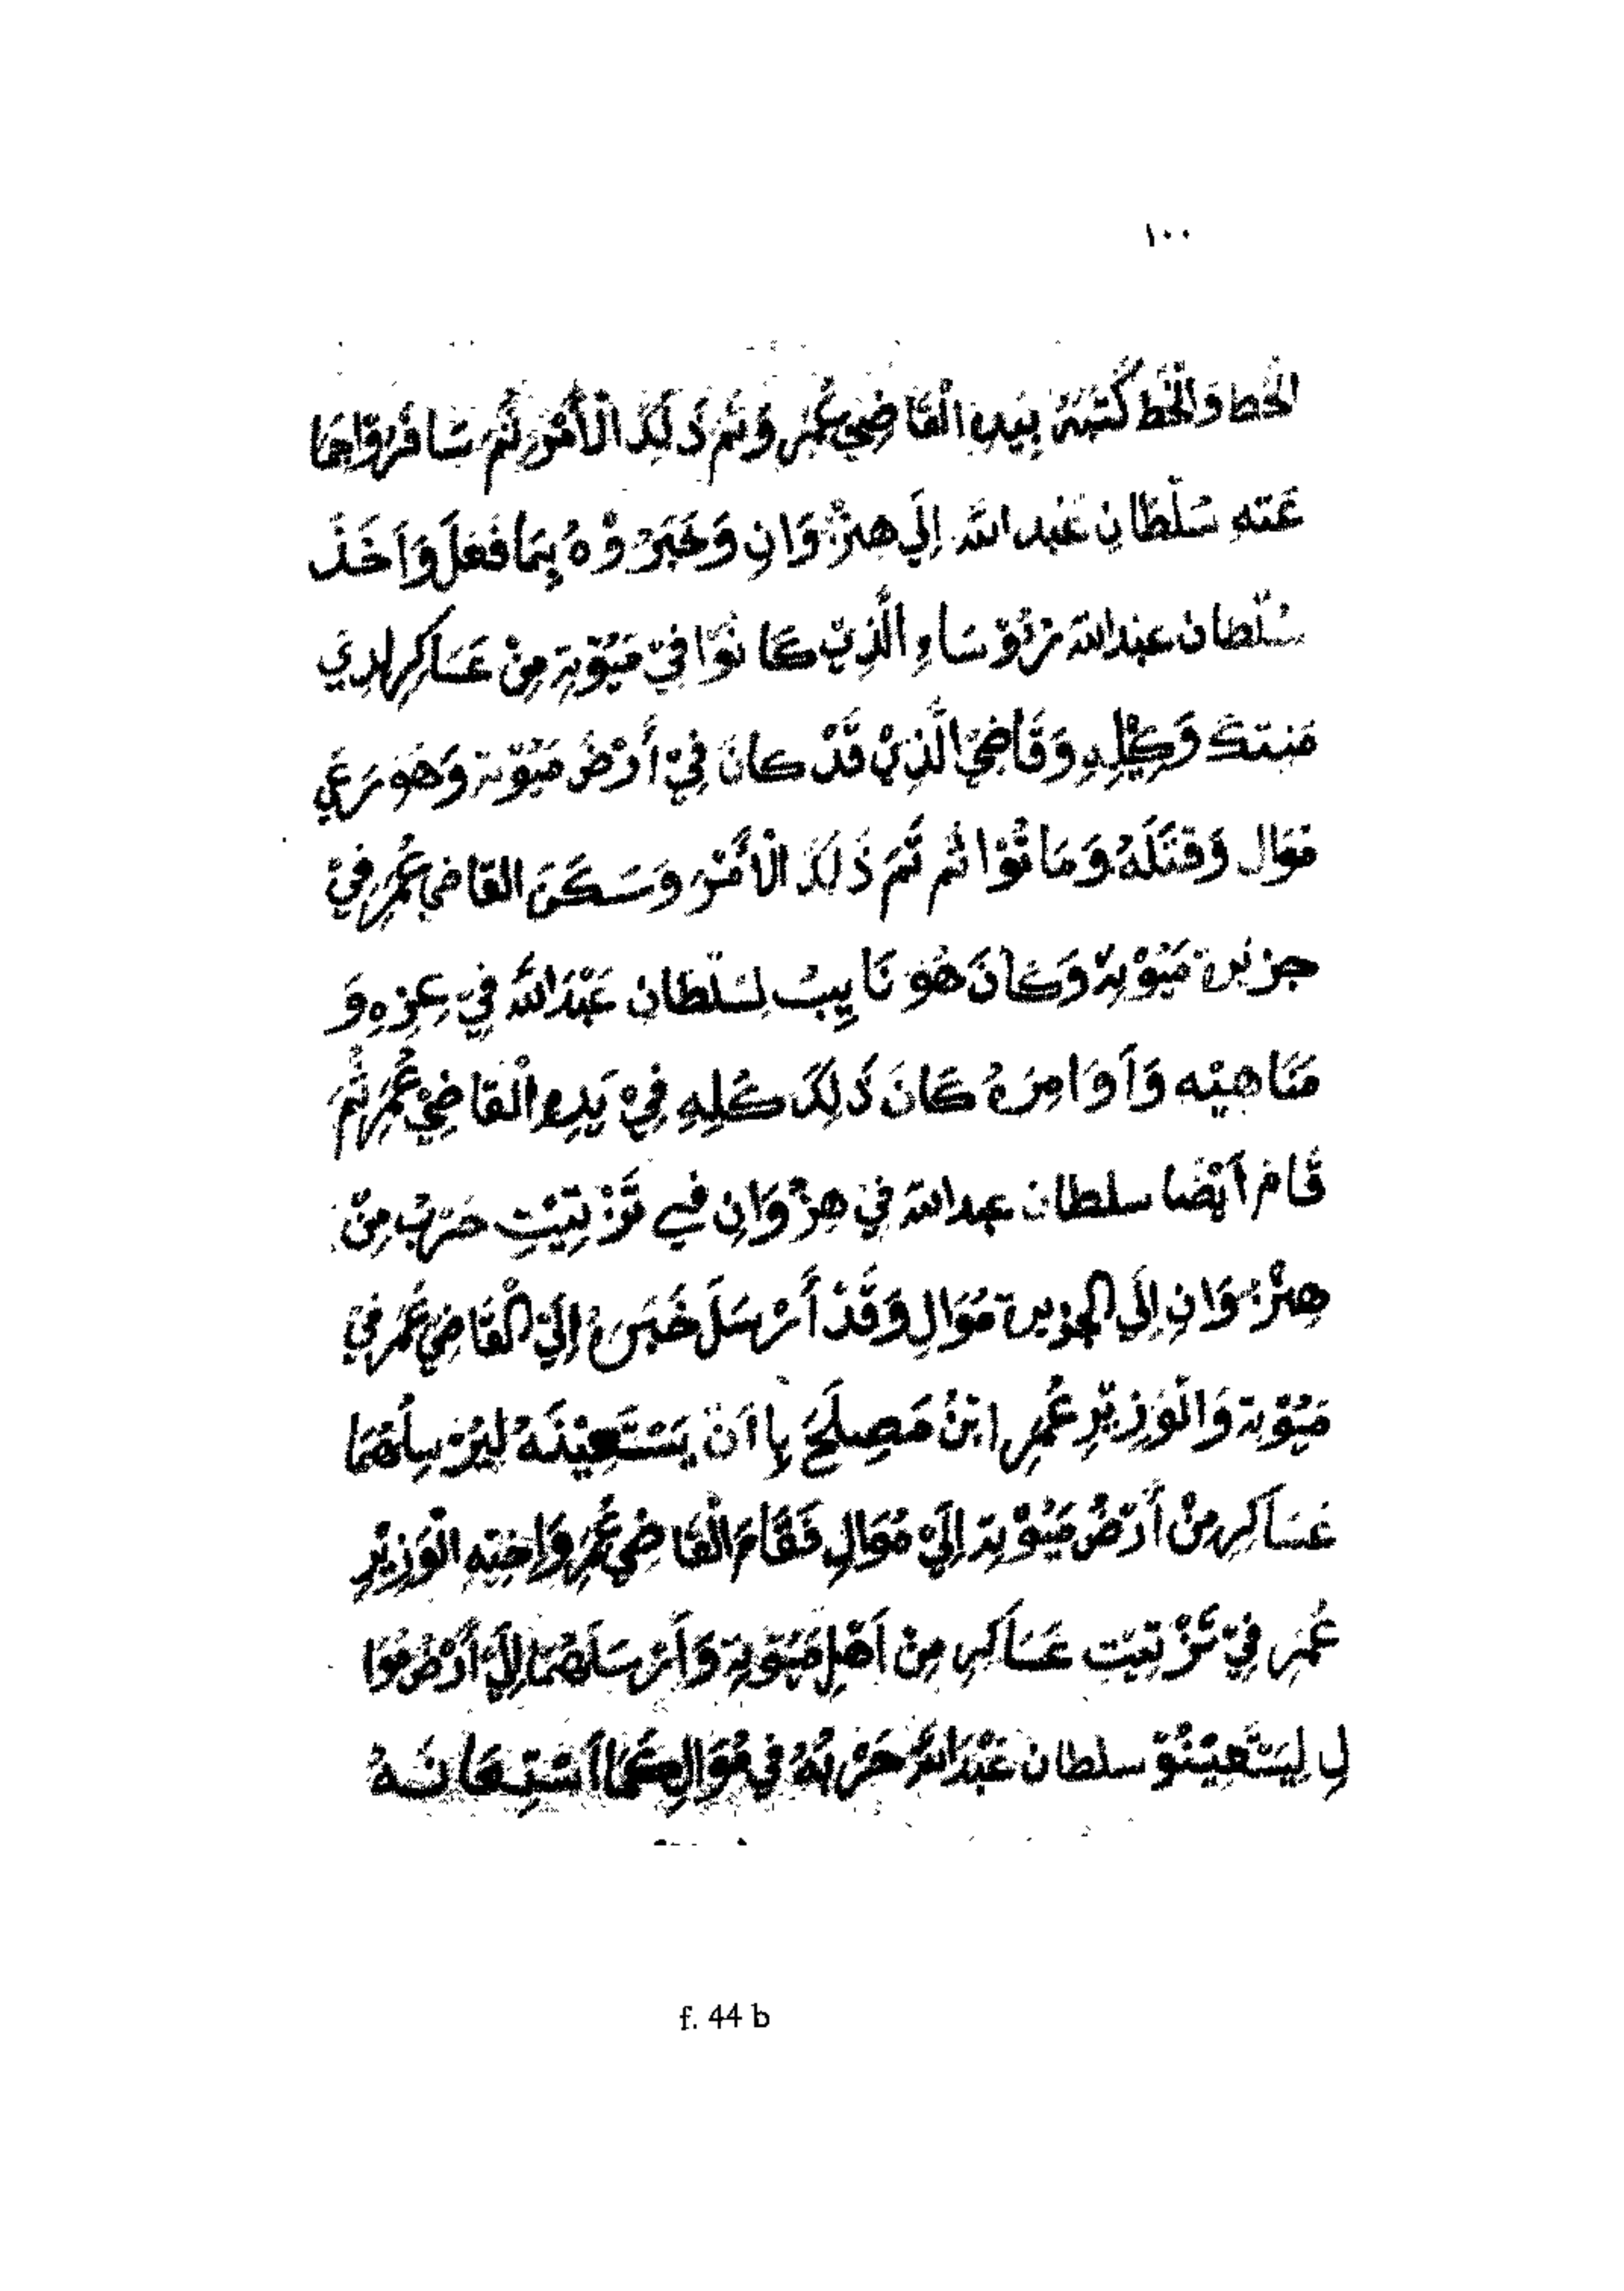 ١٠٠
الْخَط وَالْخَط كُتْبَهُ بِيَدِ الْقَاضِي عُمَرِ وَتَمَّ ذَلِكَ الْأَمْرَ ثُمَّ سَافَرُوْا جَمَا
عَتهِ سُلْطَانِ عَبْد اللّه اِلَي هِنْزُوَانِ وَخَبَرُوْهُ بِمَا فَعَلَ وَاَخَذَ
سُلْطَان عبد اللّه رُؤُوْسَاءِ الَّذِيْ كَانُوْا فِيْ مَيُوْتِهِ مِنْ عَسَاكِر
وَكِيْلِهِ وَقَاضِيْ الَّذِيْ قَدْ كانَ فِيْ أَرْضُ مَيُوْتة وَهُوَ
مُوَال وَقتَلَهُ وَمَاتُوْا ثُم تَمَّ ذَلِكَ الْأَمْرُ وَسَكَنَ القاضِي عُمَرِ فِيْ
جزيرة مَيُوْتة وَكَانَ هُوَ نَايِبُ لِسُلْطَانِ عَبْدَاللّه فِيْ عِزِهِ وَ
مَنَاهِيْه وَاَوَامِرَهُ كَانَ ذَلِكَ كُلِهِ فِيْ يَدِهِ الْقَاضِيْ عُمَرِ ثُمَّ
قَامَ اَيْضًا سلطان عبد اللّه فِيْ هِنْزُوَانِ فِي تَرْتِيْبِ حَرْبُ مِنْ
هِنْزُوَانِ اِلَي الجزيرة مُوَالِ وَقَدْ أَرْسَلَ خَبَرَهُ اِلَيْ الْقَاضِي عُمَر فِيْ
مَيُوْتة وَالْوَزِيْرِ عُمَرِ ابْنُ مَصِلَحَ بِاَانْ يَسْتَعِيْنَهُ لِيُرْسِلُهُمَا
عَسَاكِرِ مِنْ أَرْضُ مَيُوْتِة اِلَيْ مُوَالِ فَقَامَ الْقَاضِي عُمَرِ وَاَخِيْهِ الْوَزِيْرِ
عُمَرِ فِيْ تَرْتِيْبِ عَسَاكِرِ مِنْ اَهْلِ مَيُوْتة وَأَرْسَلَهُمَا اِلَيْ أَرْضُ مُوَا
لِ لِيَسْتَعِيْنُوْ سلطان عَبْدَاللّه حَرْبَهُ فِي مُوَالِ كَمَا اَسْتِعَانَهُ
f. 44 b